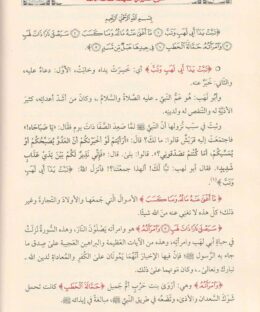 بِسْمِ اللَّهِ الرَّحْمَنِ الرَّحِيمِ
﴿تَبَّتْ يَدَا أَبِي لَهَبٍ وَتَبَّ ۝١ مَا أَغْنَى عَنْهُ مَالُهُ وَمَا كَسَبَ ۝٢ سَيَصْلَى نَارًا ذَاتَ لَهَبٍ
۝٣ وَامْرَأَتُهُ حَمَّالَةَ الْحَطَبِ ۝٤ فِي جِيدِهَا حَبْلٌ مِنْ مَسَدٍ ۝٥﴾
﴿تَبَّتْ يَدَا أَبِي لَهَبٍ وَتَبَّ﴾ أي: خَسِرَتْ يداه وخابَتْ، الأوَّل: دعاءٌ عليه،
والثاني: خبرٌ عنه.
وأبو لَهَبٍ: هو عَمُّ النبيِّ ﷺ، وكانَ من أشدِّ أعدائِه، كثيرَ
الأذيَّةِ له والتنقُّصِ له ولدينِه.
وثبتَ في سببِ نُزولِها أنَّ النبيَّ ﷺ لمَّا صعِدَ الصَّفا ذاتَ يومٍ فقالَ: «يَا صَبَاحَاه!»
فاجتمعَتْ إليه قريشٌ قالوا: ما لكَ؟ قالَ: «أَرَأَيْتُمْ لَوْ أَخْبَرْتُكُمْ أَنَّ العَدُوَّ يُصَبِّحُكُمْ أَوْ
يُمَسِّيكُمْ، أَمَا كُنْتُمْ تُصَدِّقُونِي؟». قالوا: بلى. قال: «فَإِنِّي نَذِيرٌ لَكُمْ بَيْنَ يَدَيْ عَذَابٍ
شَدِيدٍ». فقال أبو لهب: تبًّا لكَ! ألهذا جمعتَنا؟! فأنزلَ اللهُ: ﴿تَبَّتْ يَدَا أَبِي لَهَبٍ
وَتَبَّ﴾(١).
﴿مَا أَغْنَى عَنْهُ مَالُهُ وَمَا كَسَبَ﴾ الأموالُ التي جمعَها والأولادُ والتجارةُ وغيرُ
ذلك؛ كلُّ هذه لا تغني عنه من الله شيئًا.
﴿سَيَصْلَى نَارًا ذَاتَ لَهَبٍ ۝٣ وَامْرَأَتُهُ﴾ هو وامرأته يَصْلَوْنَ النَّارَ، وهذه السُّورةُ نزلَتْ
في حياةِ أبي لَهَبٍ وامرأتِه، وهذه من الآياتِ العظيمةِ والبراهينِ العجيبةِ على صِدْقِ ما
جاءَ به الرَّسولُ ﷺ؛ فإنَّ فيها الإخبارَ أنَّهما يَمُوتَانِ على الكُفْرِ والمُعاداةِ لدينِ الله
تبارك وتعالى، وكان موتهما على ذلك.
﴿وَامْرَأَتُهُ﴾ وهي: أَرْوَى بنتُ حَرْبٍ أمُّ جميلٍ ﴿حَمَّالَةَ الْحَطَبِ﴾ كانت تحمل
شَوْكَ السَّعدانِ والأذى، وتَضَعُه في طريقِ النبيِّ ﷺ، مبالغةً في إيذائه ﷺ.